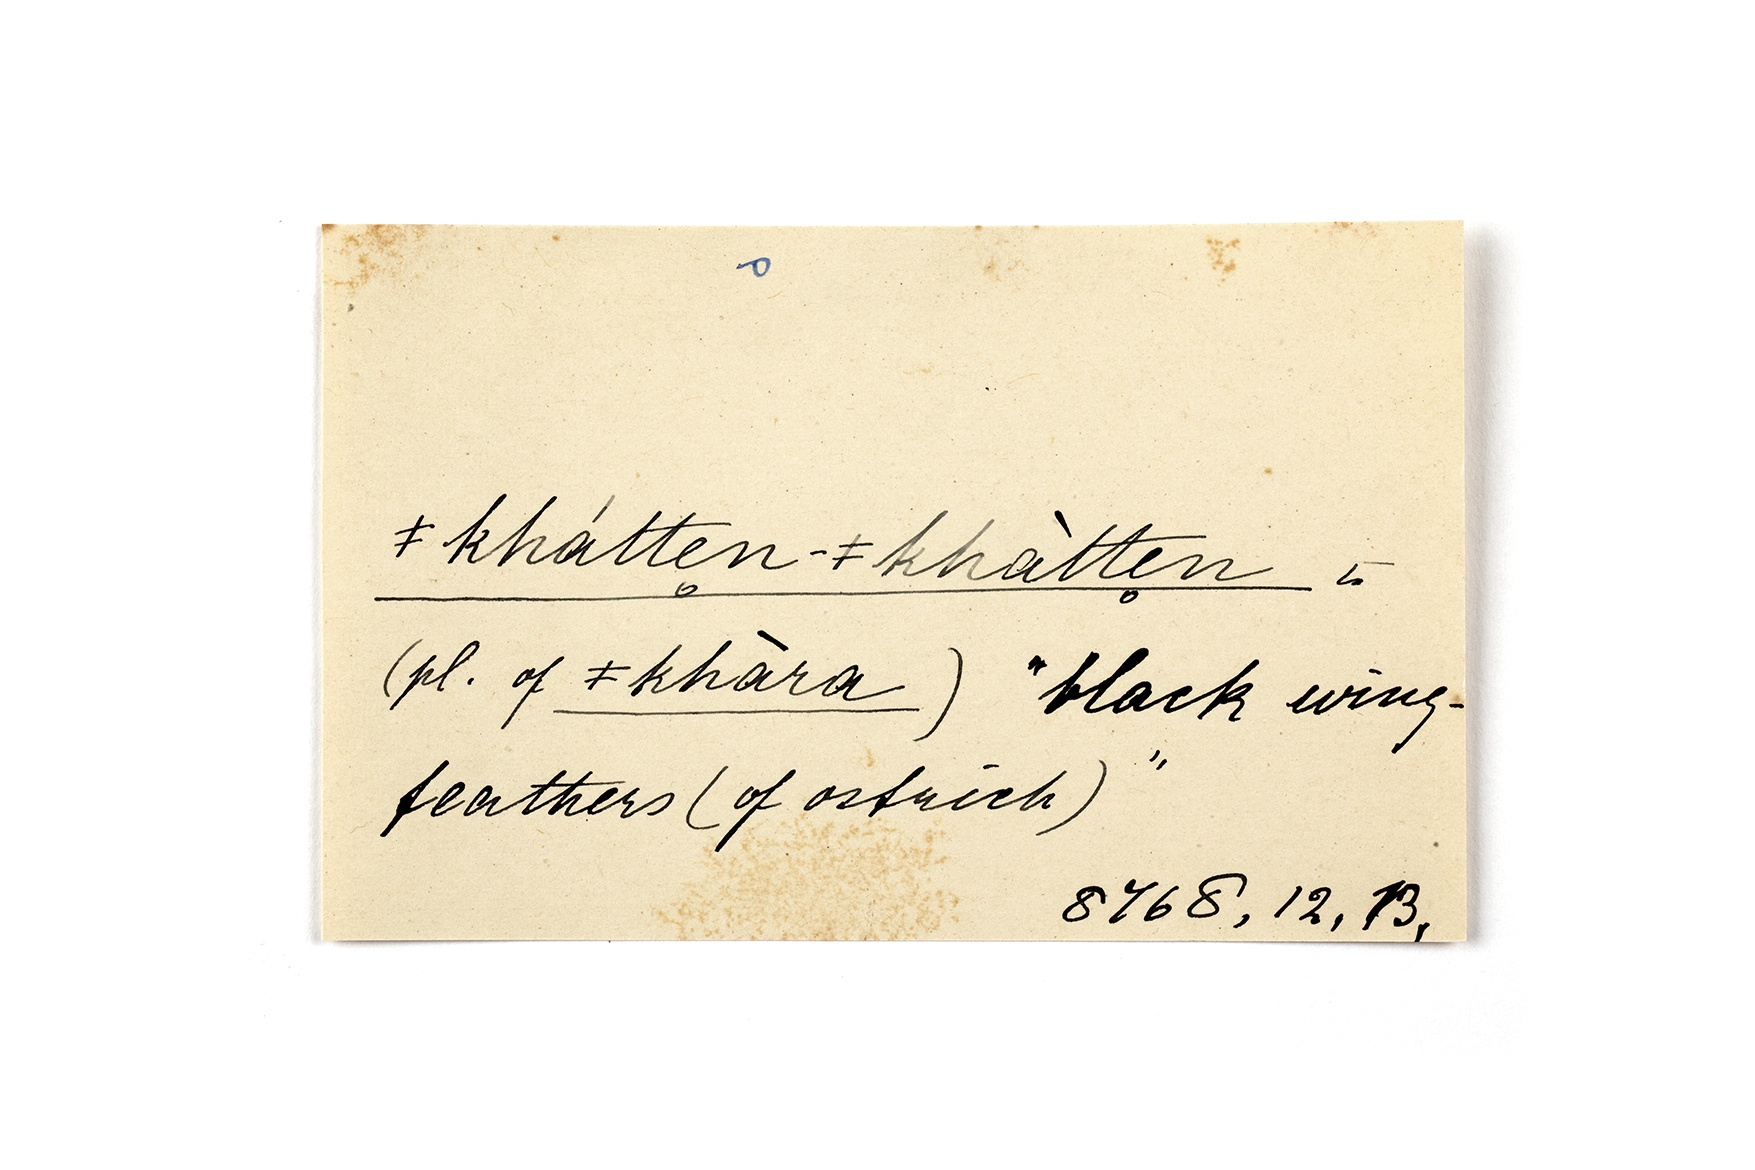 ǂkhátte̥n-ǂkhàtte̥n
(pl. of ǂkhàra) "black wing-
feathers (of ostrich)"
8768, 12, 13,